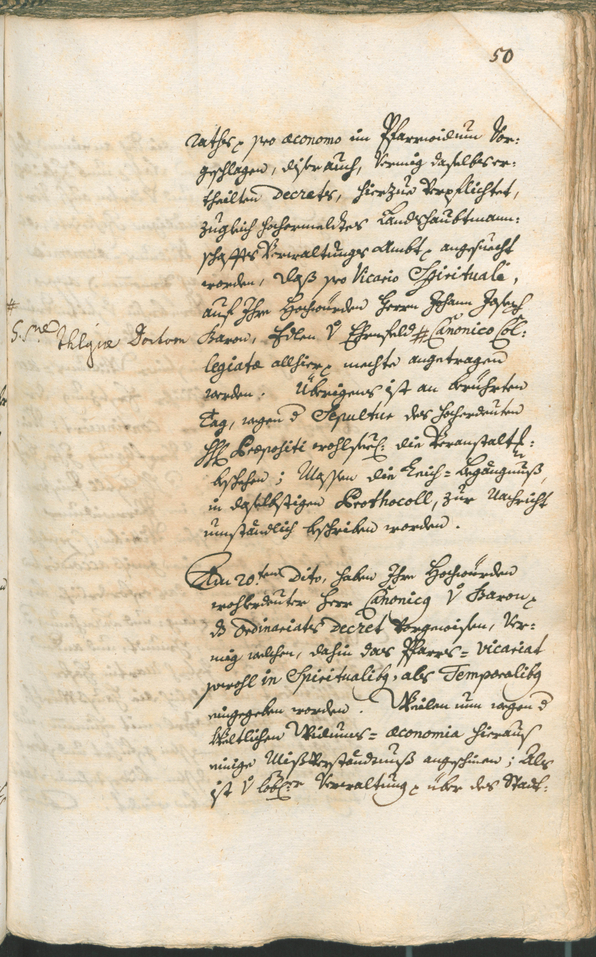 50
raths, pro œconomo im Pfarrwidum vor:
geschlagen, diser auch, vermög daselbs er:
theilten Decrets, hierzue verpflichtet,
zugleich hochermeldtes Landshaubtmann:
schaffts Verwaltungs Ambt, angesucht
worden, daß pro Vicario Spirituali,
auf Ihre Hochwürden Herrn Johann Joseph
#
S. S.ae Thlgiæ Doctorn
Baron, Edlen v Ehrenfeld # Canonico Col:
legiatæ allhier, mechte angetragen
werden. Übrigens ist an berührten
Tag, wegen d Sepultur des hocherdeuten
Hh Præpositi die Veranstalt:
beschehen; Massen die Leich=Begängnuß,
in daselbstigen Prothocoll, zur Nachricht
umständlich beschriben worden.
Am 20ten Dito, haben Ihre Hochwürden
wohlerdeuter Herr Canonicq v Baron,
ds Ordinariats Decret vorgewisen, ver:
mög welchen, dahin das Pfarrs=Vicariat
sowohl in Spiritualibq, als Temporalibq
eingegeben worden. Weilen nun wegen d
Weltlichen Widums=œconomia hierauf
einige Mißverständtnuß angeschinen; Als
ist v löbl:er Verwaltung, über des Stadt: